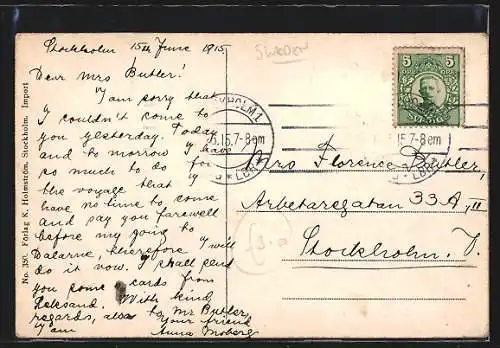 Stockholm 15th June 1915
SWEDEN
Dear Mrs Butler!
I am sorry that
I couldn't come to
you yesterday. Today
and to morrow I have
so much to do for
the voyage that I
have no time to come
and say you farewell
before my going to
Dalarne, therefore I will
do it now. I shall send
you some cards from
Leksand. With kind
regards, also to Mr Butler,
I am your friend
Anna Moberg
No. 350. Förlag K. Holmström, Stockholm. Import
5 5
SVERIGE
STOCKHOLM 1
6.15.7-8 am
LBR
15.7-8 am
LBR
Mrs Florence Butler,
Arbetaregatan 33 A, II
Stockholm. V.